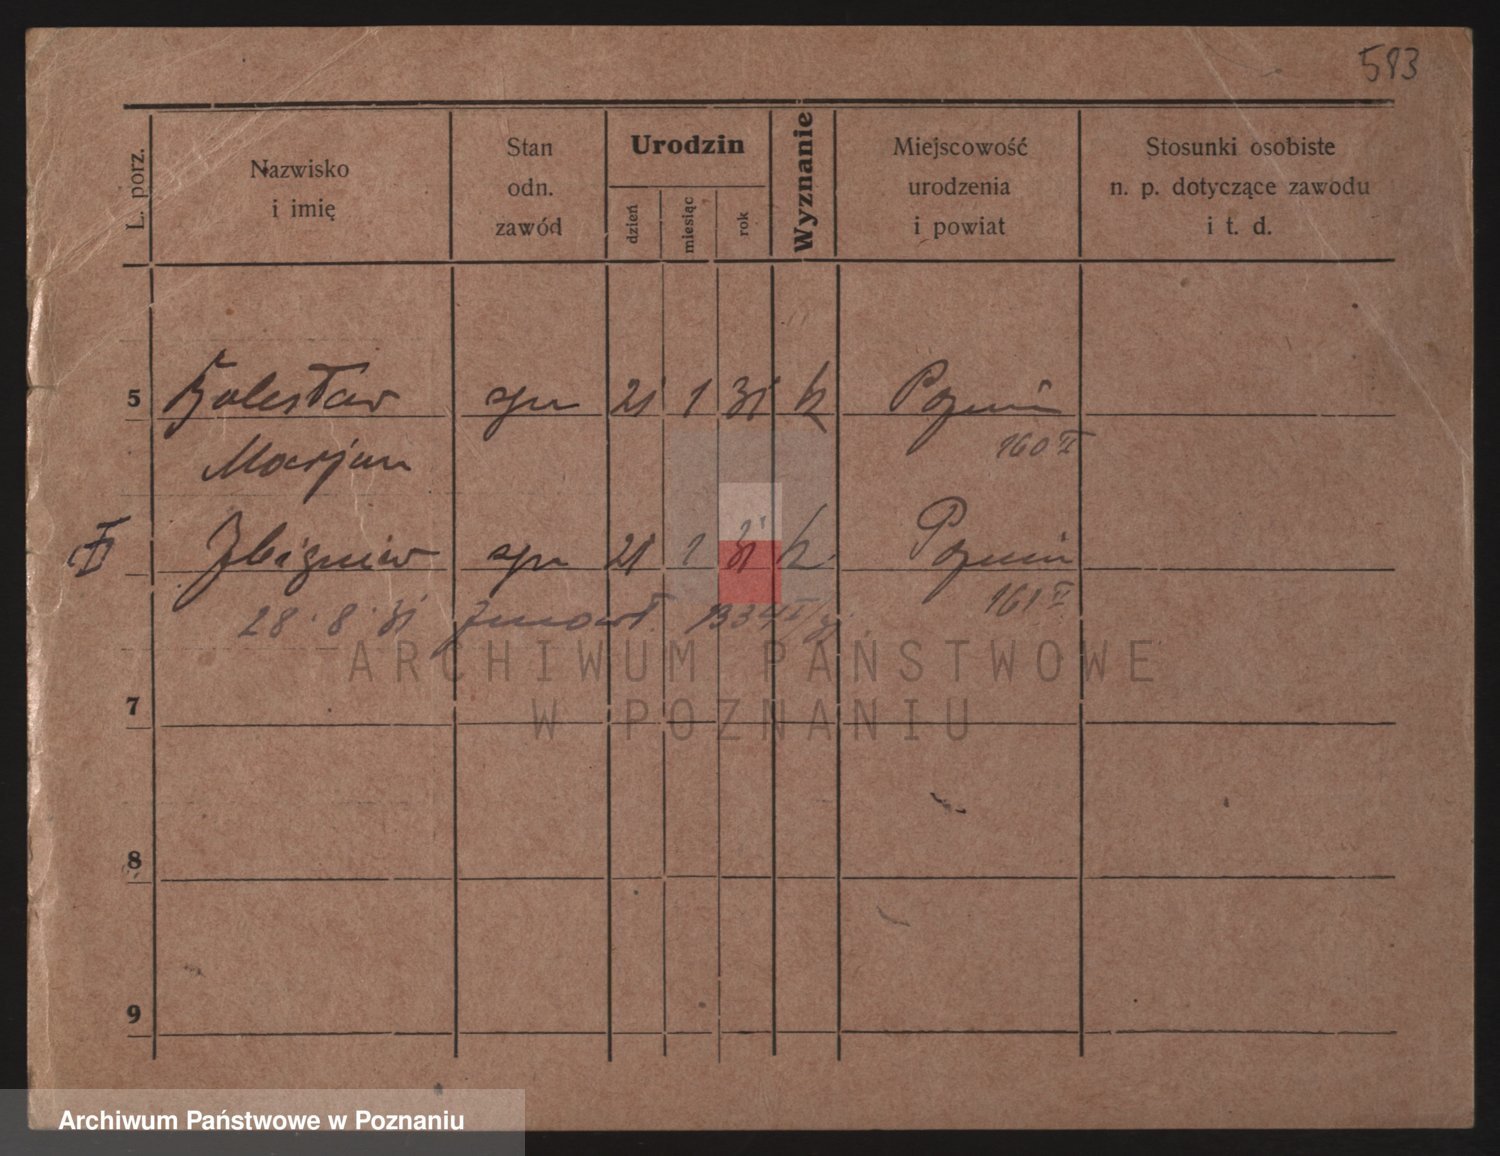 583
L. porz.
Nazwisko
i imię
Stan
odn.
zawód
Urodzin
dzień
miesiąc
rok
Wyznanie
Miejscowość
urodzenia
i powiat
Stosunki osobiste
n. p. dotyczące zawodu
i t. d.
5 Bolesław syn 21 1 31 k Poznań
Marjan 160 II
Zbigniew syn 21 1 31 k. Poznań
161 II
28. 8. 31 zmarł 1334
ARCHIWUM PAŃSTWOWE
W POZNANIU
7
8
9
Archiwum Państwowe w Poznaniu